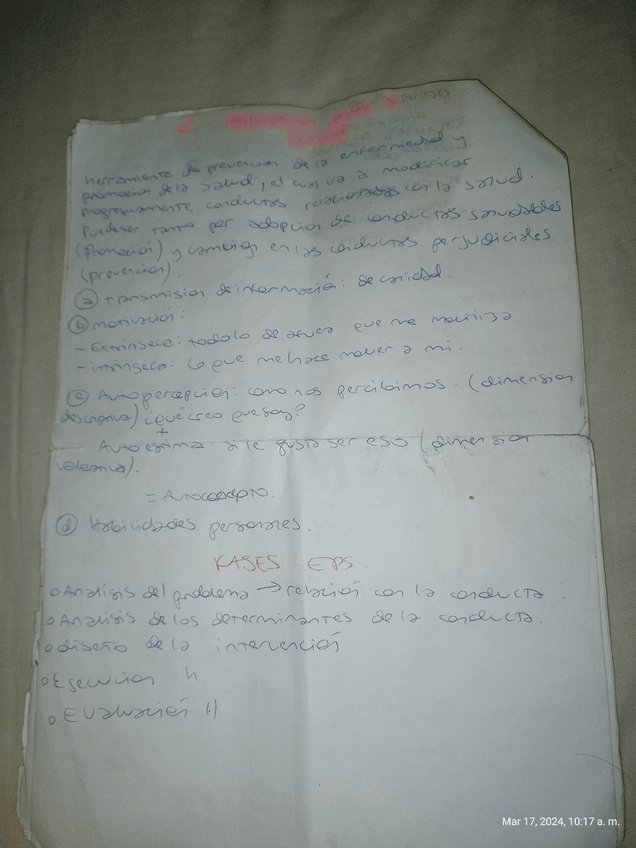 herramienta de prevencion de la enfermedad y
promocion de la Salud, el cual va a modificar
progresivamente conductas relacionadas con la salud.
Puede ser tanto por adopcion de conductas saludables
(Promoción) y cambios en las conductas perjudiciales
(prevención).
ⓐ transmision de información: de calidad.
ⓑ motivación:
- Extrínseca: todo lo de afuera que me motiva
- intrínseca: lo que me hace mover a mi.
ⓒ Autopercepcion: como nos percibimos. (dimension
descriptiva) ¿qué creo que soy?
+
Autoestima si le gusta ser eso (dimension
valorativa).
= Autoconcepto.
ⓓ Habilidades personales.
FASES EPS
o Analisis del problema → relación con la conducta.
o Analisis de los determinantes de la conducta.
o diseño de la intervención
o Ejecucion "
o Evaluación "
Mar 17, 2024, 10:17 a. m.